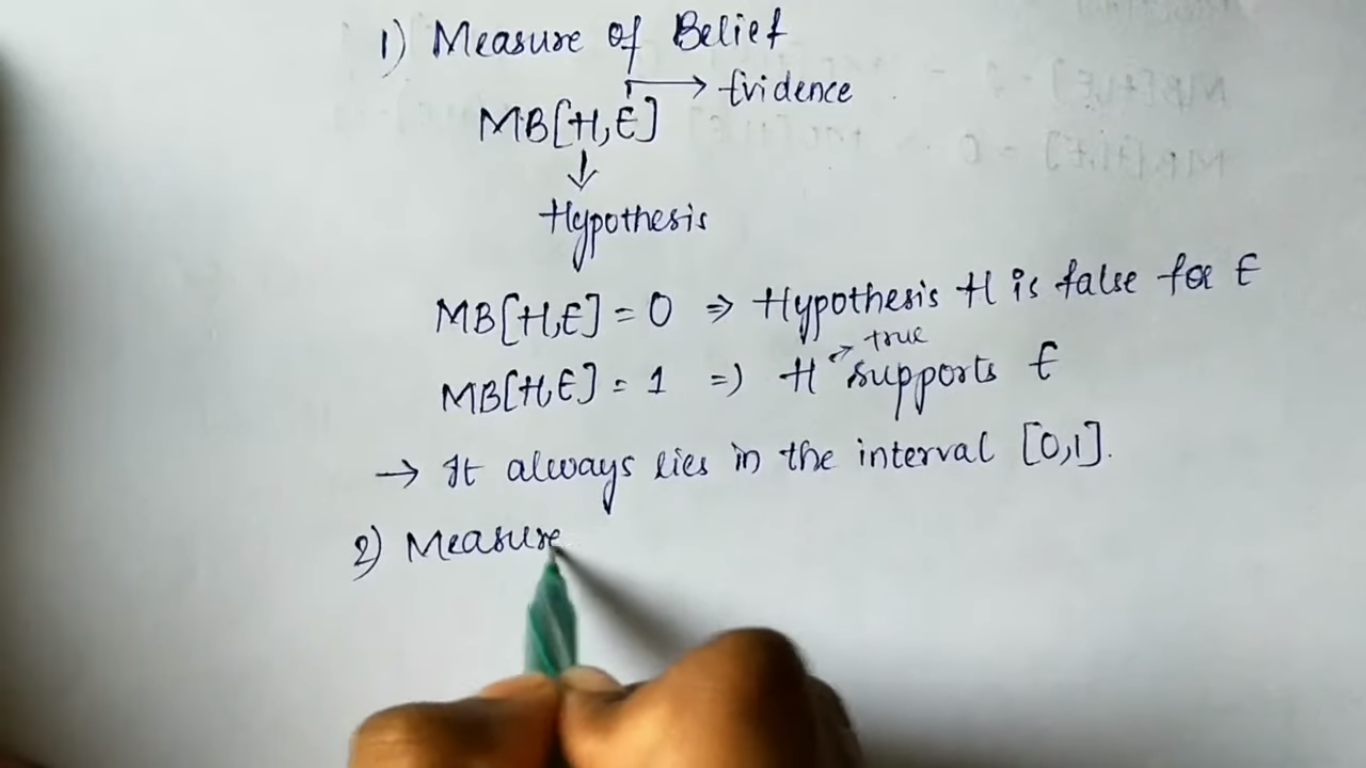 1) Measure of Belief
→ Evidence
MB[H,E]
↓
Hypothesis
MB[H,E] = 0 ⇒ Hypothesis H is false for E
→ true
MB[H,E] = 1 => H supports E
→ It always lies in the interval [0,1].
2) Measure